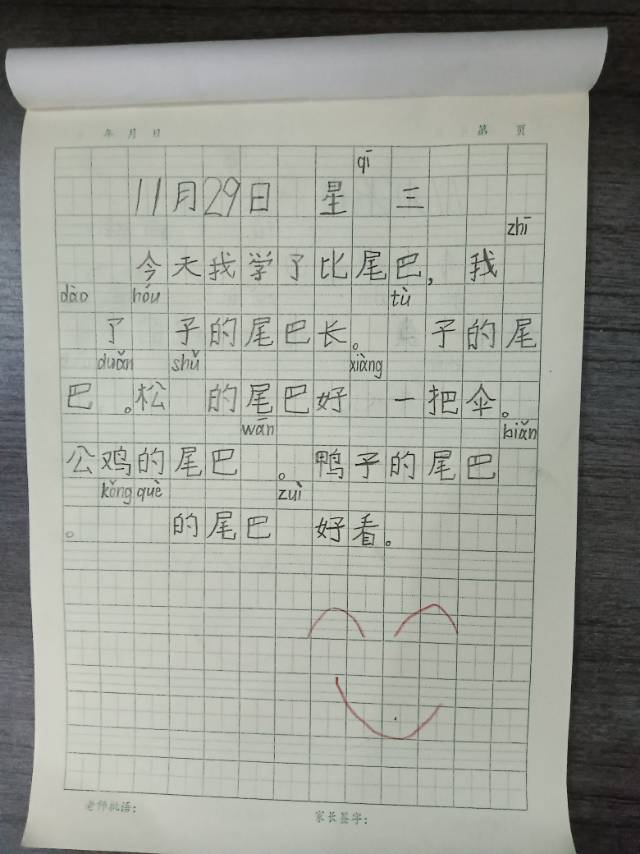 年 月 日 第 页
qī
11月29日 星 三
zhī
今天我学了比尾巴，我
dào hóu tù
了 子的尾巴长。 子的尾
duǎn shǔ xiàng
巴 。松 的尾巴好 一把伞。
wān biǎn
公鸡的尾巴 。鸭子的尾巴
kǒng què zuì
。 的尾巴 好看。
老师批语： 家长签字：